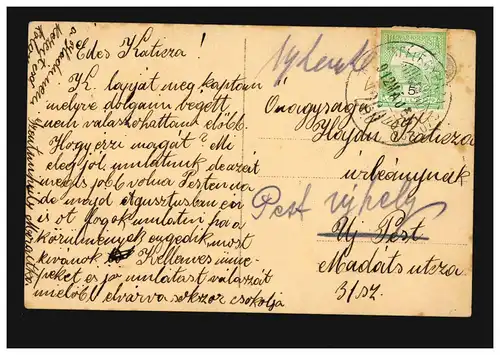 Edes Katicza!
K. lapját megkaptam
melyre dolgaim végett
nem válaszolhattam előbb.
Hogy érzi magát? Mi
elég jól mulatunk de azért
még is jobb volna Pesten na
de majd Agusztusban én
is ot fogok mulatni ha a
körülmények engedik most
kivánok Kellemes ünne-
peket és jó mulatást válaszát
mielőbb elvárva sokszor csókolja
Onagysága
Hajdu Katicza
urleánynak
Pest ujhely
Uj Pest
Madáts utcza
31 sz.
5